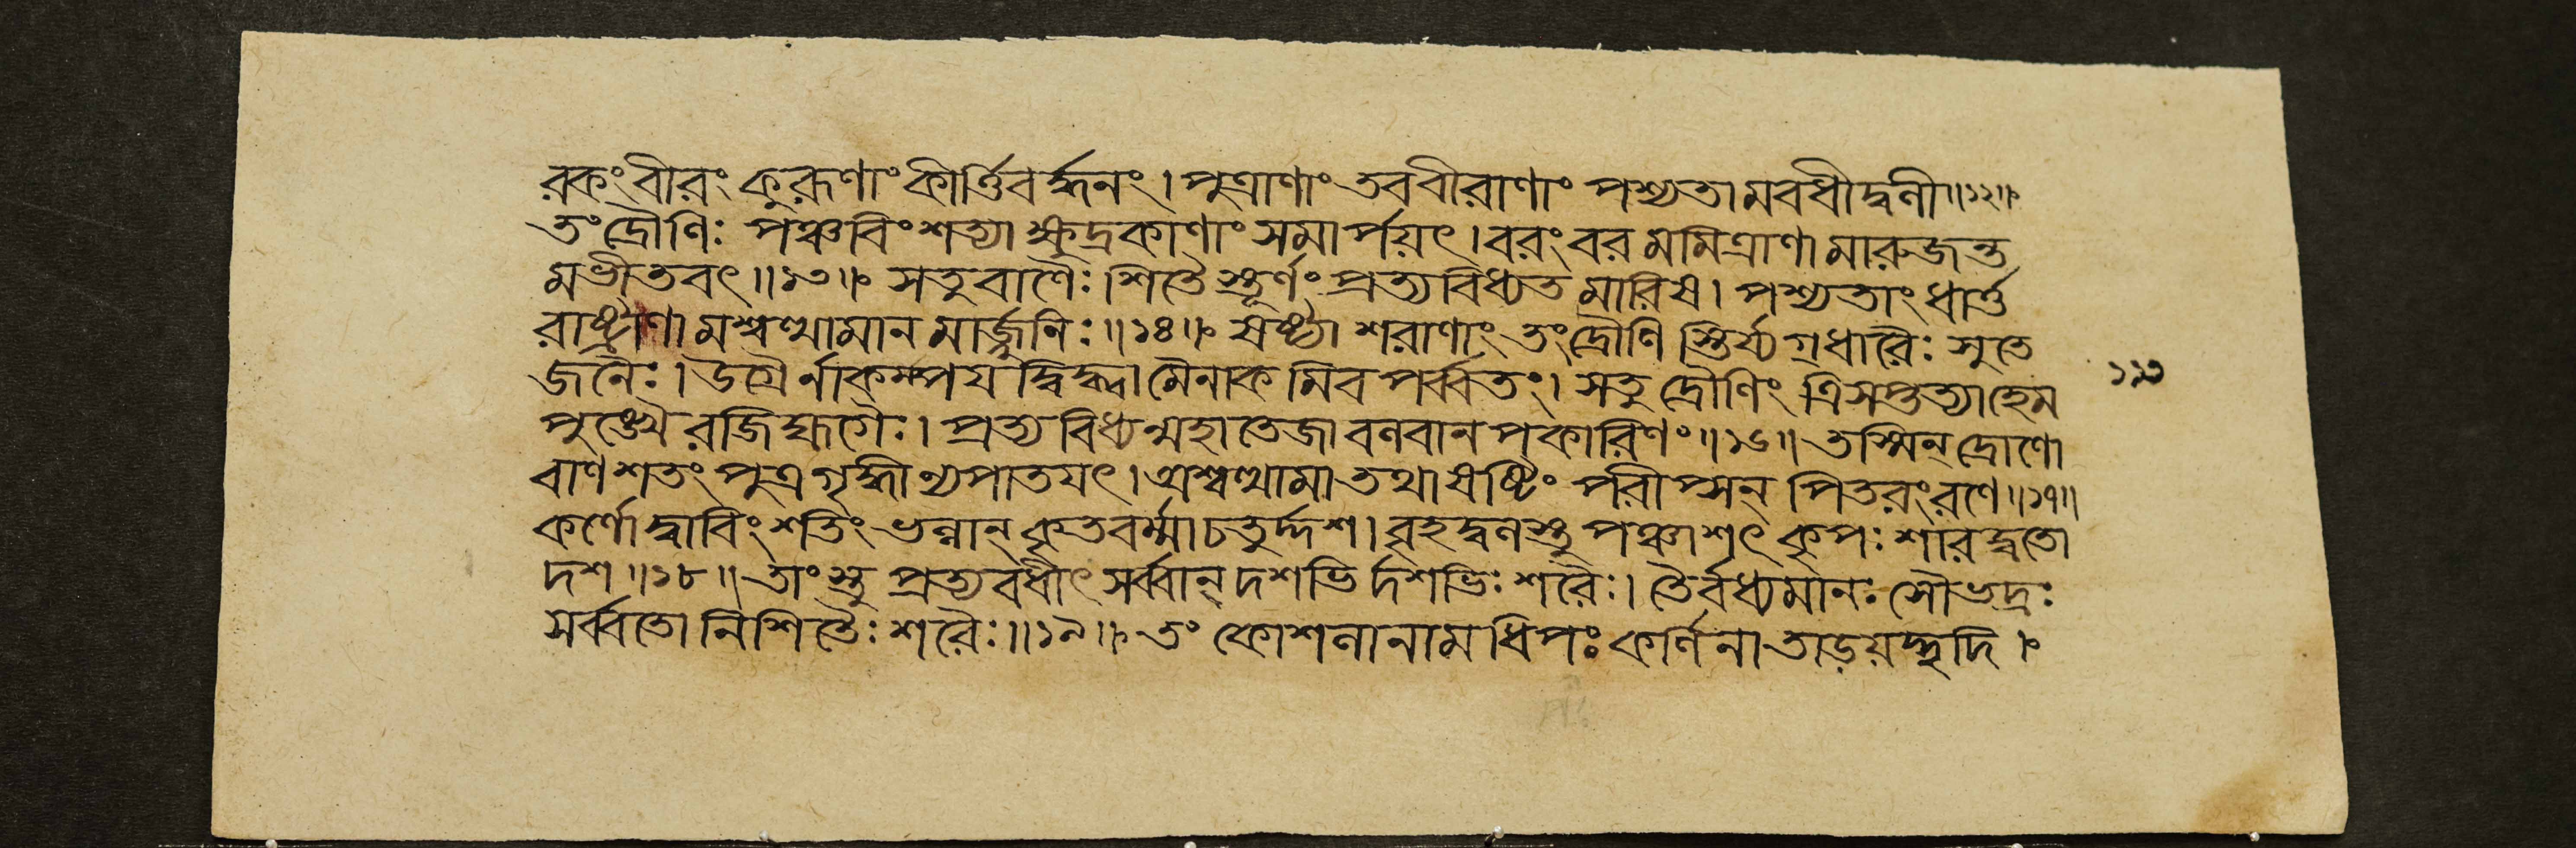 রকং বীরং কুরূণাং কীর্ত্তিবর্দ্ধনং। পুত্রাণাং তব বীরাণাং পশ্যতামবধীদ্বলী॥১২॥
তং দ্রৌণিঃ পঞ্চবিংশত্যা ক্ষুদ্রকাণাং সমার্পয়ৎ। বরং বরমমিত্রাণামারুজন্ত
মভীতবৎ॥১৩॥ স তু বাণৈঃ শিতৈস্তূর্ণং প্রত্যবিধ্যত মারিষ। পশ্যতাং ধার্ত্ত
রাষ্ট্রাণামশ্বত্থামানমার্জ্জুনিঃ॥১৪॥ ষষ্ট্যা শরাণাং তং দ্রৌণিস্তির্য্যগ্ধারৈঃ সুতে
জনৈঃ। উগ্রৈর্নাকম্পযদ্বিদ্ধ্বা মৈনাকমিব পর্ব্বতং। স তু দ্রৌণিং ত্রিসপ্তত্যা হেম
পুঙ্খৈরজিহ্মগৈঃ। প্রত্যবিধ্যন্মহাতেজা বলবানপকারিণং॥১৬॥ তস্মিন্ দ্রোণো
বাণশতং পুত্রগৃদ্ধী ন্যপাতযৎ। অশ্বত্থামা তথা ষষ্টিং পরীপ্সন্ পিতরং রণে॥১৭॥
কর্ণো দ্বাবিংশতিং ভল্লান্ কৃতবর্ম্মা চতুর্দ্দশ। বৃহদ্বলস্তু পঞ্চাশৎ কৃপঃ শারদ্বতো
দশ॥১৮॥ তাংস্তু প্রত্যবধীৎ সর্ব্বান্ দশভির্দশভিঃ শরৈঃ। তৈর্বধ্যমানঃ সৌভদ্রঃ
সর্ব্বতো নিশিতৈঃ শরৈঃ॥১৯॥ তং কোশলানামধিপঃ কর্ণিনাতাড়য়দ্ধৃদি।
১১৩